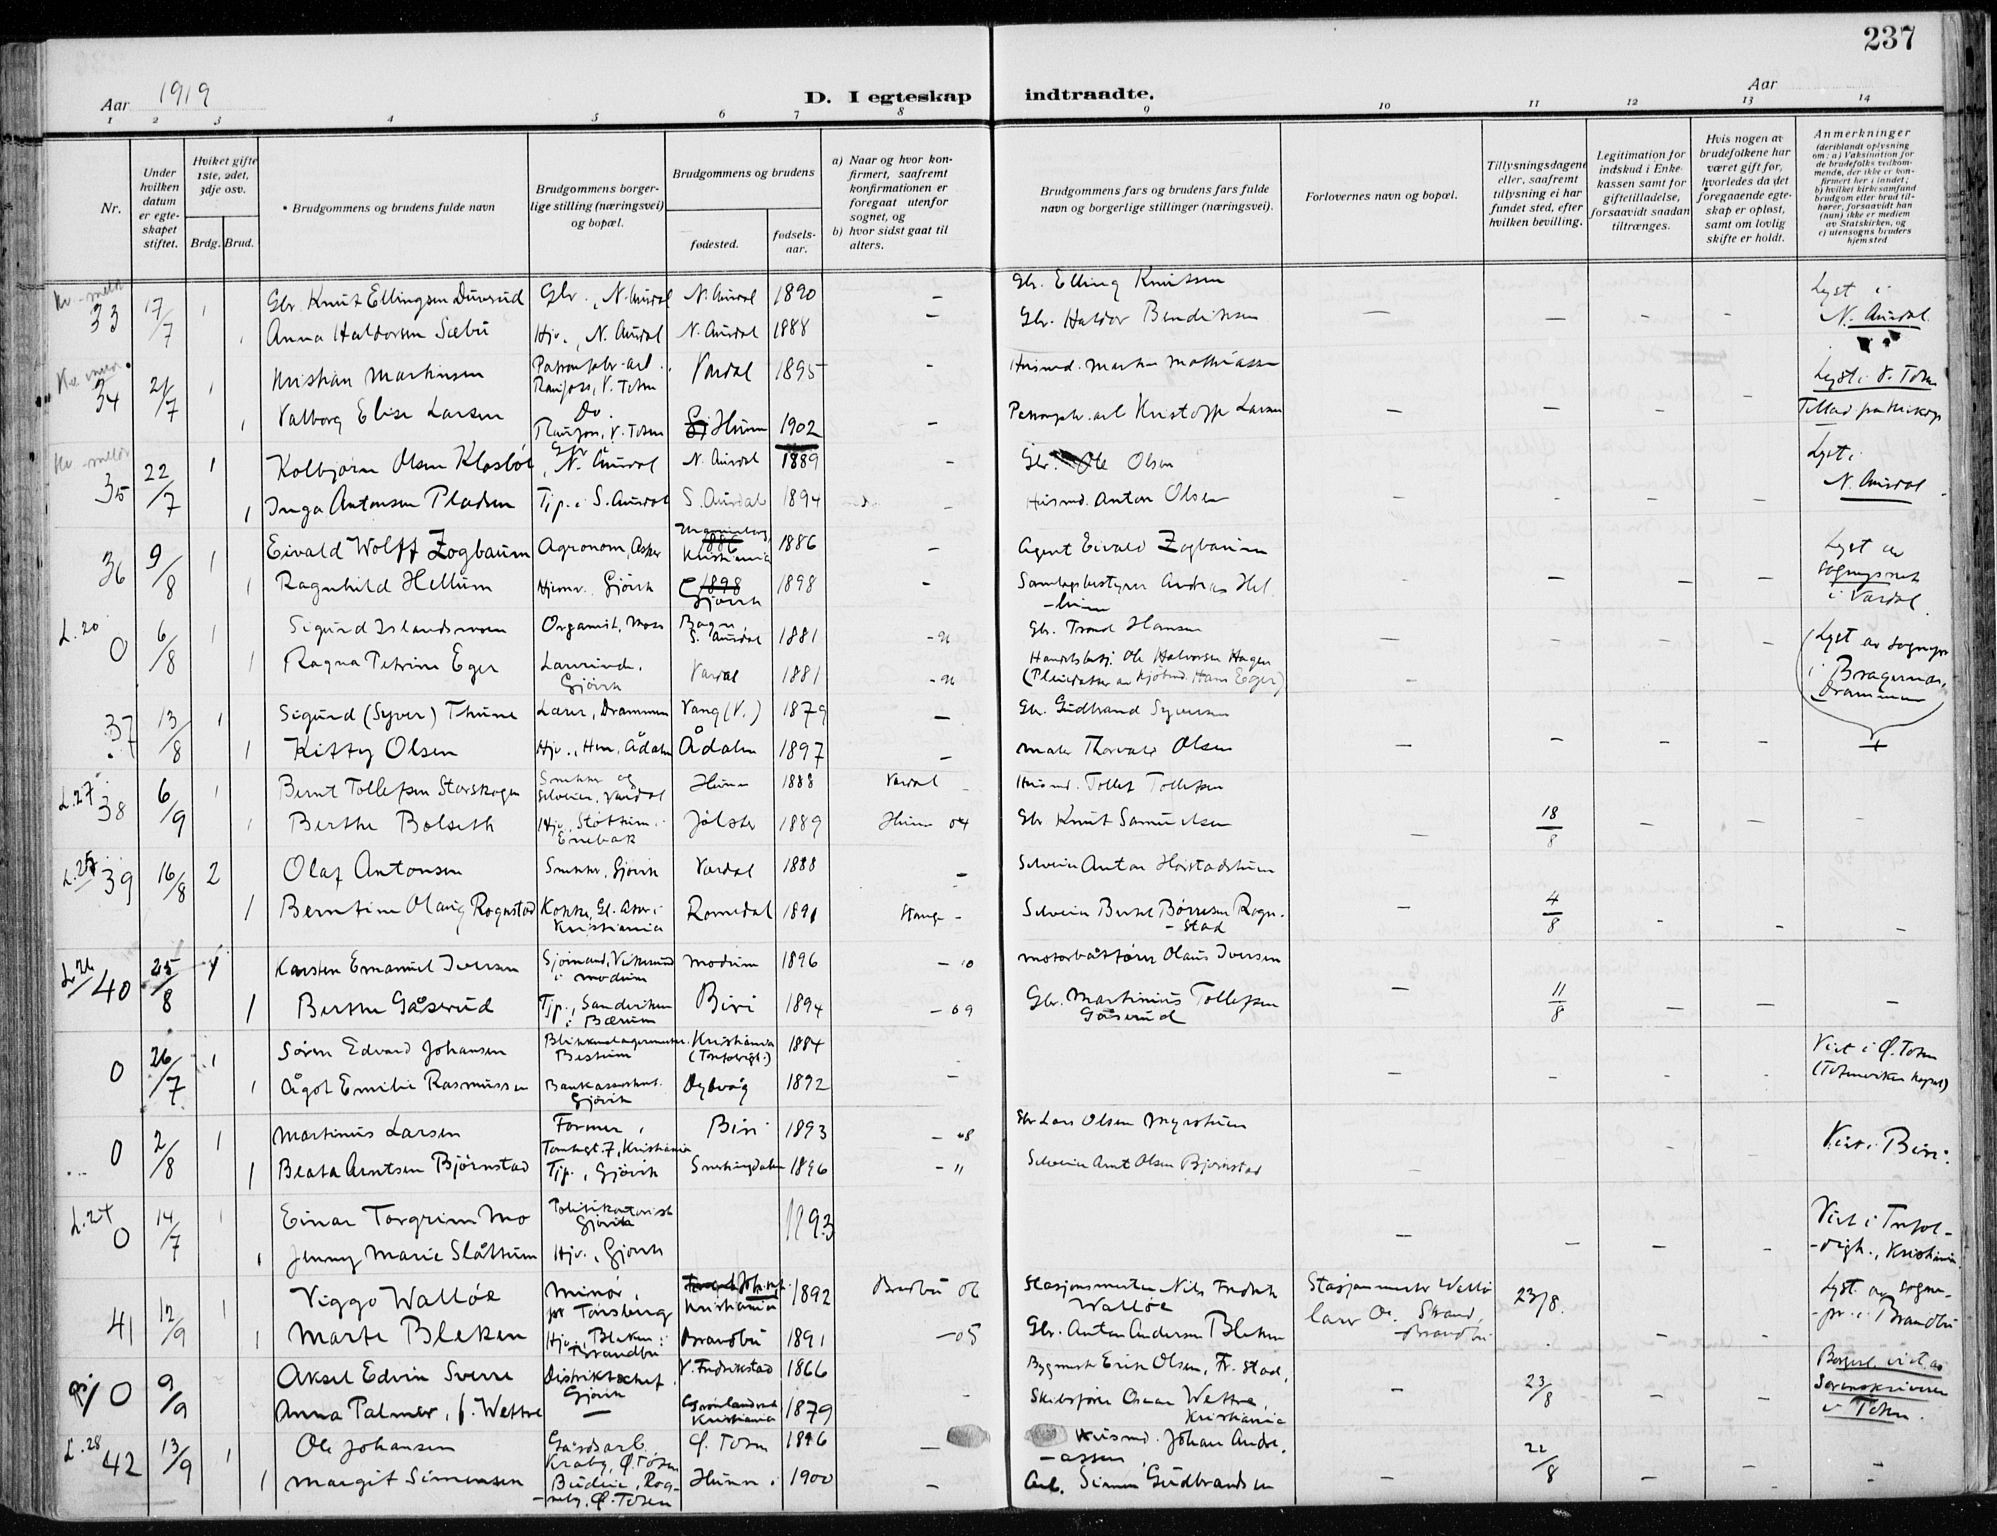 237
Aar 1919
D. I egteskap indtraadte.
Aar
1 2 3 4 5 6 7 8 9 10 11 12 13 14
Nr.
Under hvilken datum er egteskapet stiftet.
Hviket gifte 1ste, 2det, 3dje osv.
Brdg. Brud.
Brudgommens og brudens fulde navn
Brudgommens borgerlige stilling (næringsvei) og bopæl.
Brudgommens og brudens
fødested.
fødselsaar.
a) Naar og hvor konfirmert, saafremt konfirmationen er foregaat utenfor sognet, og
b) hvor sidst gaat til alters.
Brudgommens fars og brudens fars fulde navn og borgerlige stillinger (næringsvei).
Forlovernes navn og bopæl.
Tillysningsdagene eller, saafremt tillysning ei har fundet sted, efter hvilken bevilling.
Legitimation for indskud i Enkekassen samt for giftetilladelse, forsaavidt saadan tiltrænges.
Hvis nogen av brudefolkene har været gift før, hvorledes da det foregaaende egteskap er opløst, samt om lovlig skifte er holdt.
Anmerkninger
(deriblandt oplysning om: a) Vaksination for de brudefolks vedkommende, der ikke er konfirmert her i landet;
b) hvilket kirkesamfund brudgom eller brud tilhører, forsaavidt han (hun) ikke er medlem av Statskirken, og
c) utensogns bruders hjemsted
33 17/7 1 Gbr. Knut Ellingsen Duvrud Gbr., N. Aurdal N. Aurdal 1890 — Gbr. Elling Knutsen Lyst i
1 Anna Haldorsen Sæbu Hjv., N. Aurdal N. Aurdal 1888 — Gbr. Haldor Bendiksen — — - - N. Aurdal.
34 21/7 1 Kristian Martinsen Patronfabr. arb. Raufoss, V. Toten Vardal 1895 - Husmd. Martin Mathiassen Lyst i V. Toten
1 Valborg Elise Larsen Do. Raufoss, V. Toten Hunn 1902 - Patronfabr. arb. Kristoffer Larsen — — — —
35 22/7 1 Kolbjørn Olsen Klosbøle Gbr. N. Aurdal N. Aurdal 1889 - Gbr. Ole Olsen Lyst i
1 Inga Antonsen Pladsen Tjp. i S. Aurdal S. Aurdal 1894 - Husmd. Anton Olsen - - - - N. Aurdal.
36 9/8 1 Eivald Wolff Zogbaum Agronom, Asker Kristiania 1886 - Agent Eivald Zogbaum Lyst av
1 Ragnhild Hellum Hjemv. Gjøvik Gjøvik 1898 - Samlagsbestyrer Andreas Hellum — — — — sognepr. i Vardal.
L. 20 0 6/8 1 Sigurd Islandsmoen Organist, Moss Bagn, S. Aurdal 1881 Gbr. Trond Hansen Lyst av sognepr.
1 Ragna Petrine Eger Lærerinde. Gjøvik Vardal 1881 Handelsbetj. Ole Halvorsen Hagen (Pleiedatter av Kjøbmd. Hans Eger) - i Bragernes, Drammen
37 13/8 1 Sigurd (Syver) Thune Lærer, Drammen Vang (V.) 1879 — Gbr. Gudbrand Syversen
1 Kitty Olsen Hjv., Hen, Ådalen Ådalen 1897 - Maler Thorvald Olsen — - - - +
L. 27 38 6/9 1 Bernt Tollefsen Storskogen Snekker og Selveier, Vardal Hunn 1888 Vardal - Husmd. Tollef Tollefsen
1 Berthe Bolseth Hjv. Enebak Jølster 1889 Hunn 04 Gbr Knut Samuelsen — 18/8 - -
39 16/8 2 Olaf Antonsen Snekker, Gjøvik Vardal 1888 - Selveier Anton Horstadstuen
1 Berntine Olaug Rognstad Kokke, Gl. Aker i Kristiania Romedal 1891 Stange - Selveier Bernt Børresen Rognstad — 4/8 - - -
L. 26 40 25/8 1 Karsten Emanuel Iversen Sjømand, Vikersund i Modum Modum 1896 - 10 Motorbåtfører Olaus Iversen
1 Berthe Gåserud Tjp., Sandviken i Bærum Biri 1894 - 09 Gbr. Martinius Tollefsen Gåserud — 11/8 - - -
0 26/7 1 Søren Edvard Johansen Blikkenslagermester. Bestum Kristiania 1884 Viet i Ø. Toten
1 Ågot Emilie Rasmussen Bankassistent. Gjøvik Dybvåg 1892 - - - - - (Totenviken kapel)
0 2/8 1 Martinus Larsen Former, Tomtegt. 7, Kristiania Biri 1893 - 08 Gbr Lars Olsen Myrstuen Viet i Biri.
1 Beata Arntsen Bjørnstad Tjp., Gjøvik 1896 - 11 Selveier Arnt Olsen Bjørnstad
L. 24 0 14/7 1 Einar Torgrim Mo Gjøvik 1893 Viet i Trefol-
1 Jenny Marie Slåttum Hjv., Gjøvik — - - - -digh., Kristiania
41 12/9 1 Viggo Walløe Minør, Tønsberg Kristiania 1892 Brandbu 06 Stasjonsmester Nils Fredrik Walløe Stasjonsmester Walløe 23/8. Lyst av sogne-
1 Marte Bleken Hjv., Bleken i Brandbu Brandbu 1891 - 05 Gbr. Anton Andersen Bleken Lærer O. Strand, Brandbu - - -pr. i Brandbu
0 9/9 Aksel Edvin Sverre Distriktschef. Gjøvik V. Fredrikstad 1866 Bygmester Erik Olsen, Fr. stad, Borgerl. viet av
Anna Palmer, f. Wettre — Kristiania 1879 - Skibsfører Oscar Wettre, Kristiania — 23/8 - - Sorenskriveren i Toten.
L. 28 42 13/9 1 Ole Johansen Gårdsarb. Kraby, Ø. Toten Ø. Toten 1896 — Husmd. Johan Andreassen
1 Margit Simensen Budeie, Rogneby, Ø. Toten Hunn 1900 - Arb. Simen Gudbrandsen - 22/8 - - -